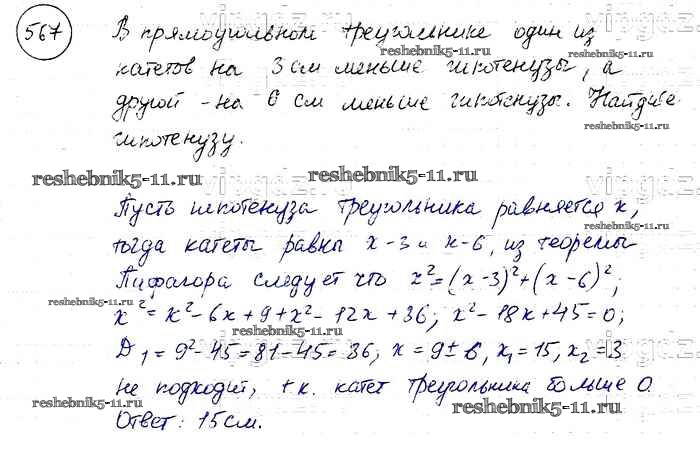 567
В прямоугольном треугольнике один из
катетов на 3 см меньше гипотенузы, а
другой - на 6 см меньше гипотенузы. Найдите
гипотенузу.
Пусть гипотенуза треугольника равняется x,
тогда катеты равны x-3 и x-6, из теоремы
Пифагора следует что x²=(x-3)²+(x-6)²;
x²=x²-6x+9+x²-12x+36; x²-18x+45=0;
D₁=9²-45=81-45=36; x=9±6, x₁=15, x₂=3
не подходит, т.к. катет треугольника больше 0.
Ответ: 15см.
reshebnik5-11.ru
reshebnik5-11.ru
reshebnik5-11.ru
reshebnik5-11.ru
reshebnik5-11.ru
reshebnik5-11.ru
reshebnik5-11.ru
reshebnik5-11.ru
reshebnik5-11.ru